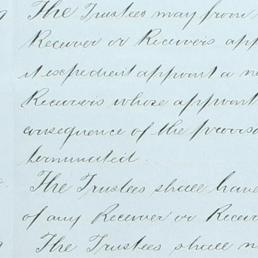 The Trustees may from
Receiver or Receivers app
it expedient appoint a ne
Receivers whose appoint
consequence of the proviso
terminated.
The Trustees shall have
of any Receiver or Receiv
The Trustees shall n